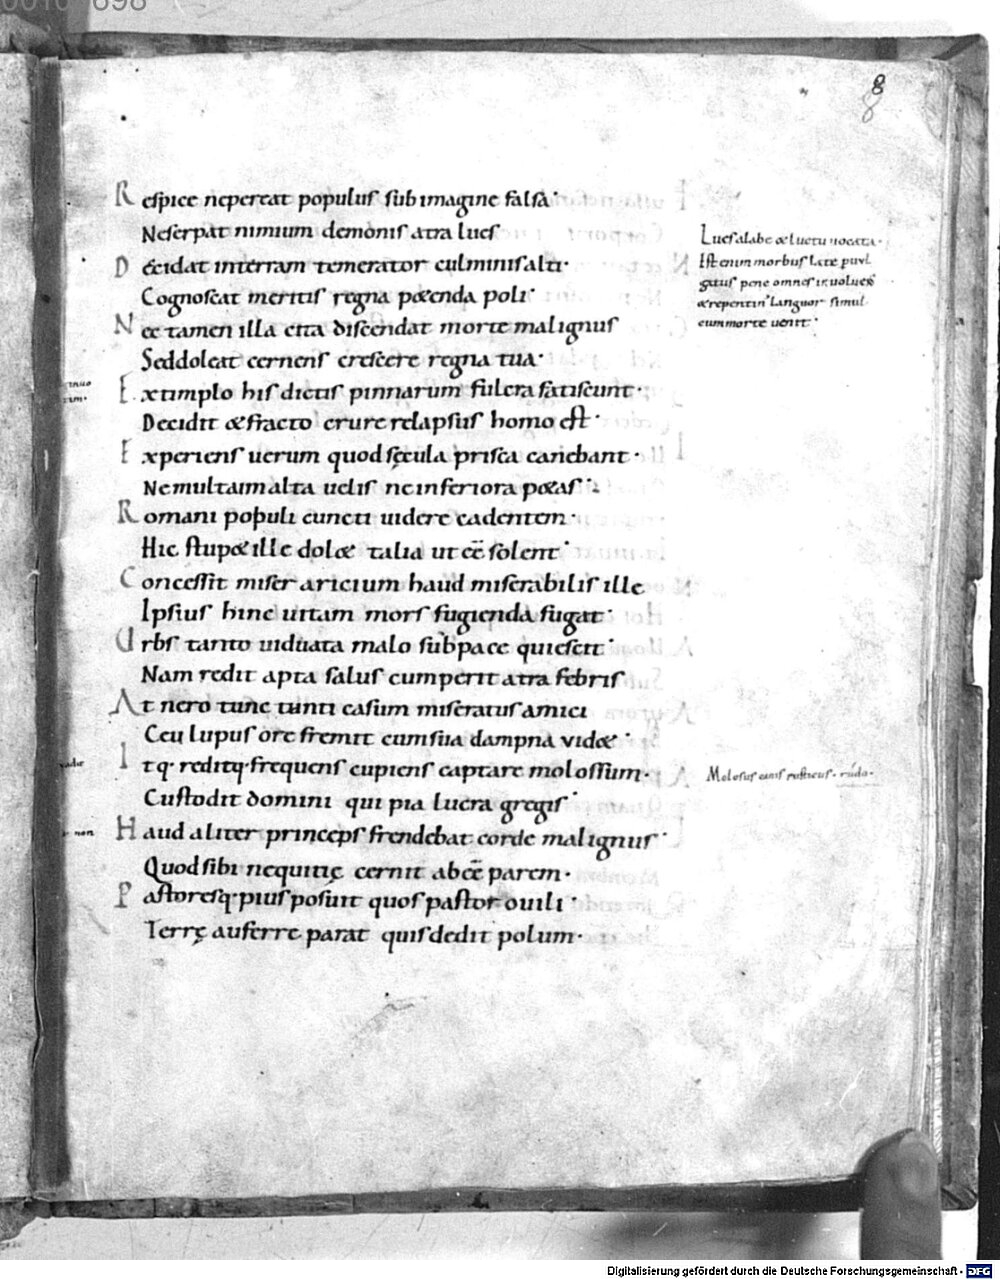 8
8
Respice nepereat populus sub imagine falsa·
Neserpat nimium demonis atra lues
Decidat interram temerator culminis alti·
Cognoscat meritis regna petenda poli·
Nec tamen illa cita discendat morte malignus
Sed doleat cernens crescere regna tua·
Extimplo his dictis pinnarum fulcra fatiscunt·
Decidit & fracto crure relapsus homo est·
Experiens uerum quod sęcula prisca canebant·
Ne multa im alta uelis ne inferiora p&as·
Romani populi cuncti uidere cadentem·
Hic stup& ille dol& talia ut cē solent·
Concessit miser aricium haud miserabilis ille
Ipsius hinc uitam mors fugienda fugat·
Urbs tanto uiduata malo sub pace quiescit·
Nam redit apta salus cum perit atra febris
At nero tunc tanti casum miseratus amici
Ceu lupus ore fremit cum sua dampna uid&·
Itq· reditq· frequens cupiens captare molossum·
Custodit domini qui pia lucra gregis·
Haud aliter princeps frendebat corde malignus·
Quod sibi nequitię cernit abcē parem·
Pastoresq· pius posuit quos pastor ouili·
Terrę auferre parat quis dedit polum·
Lues a labe & luctu uocata·
Est enim morbus late puul
gatus pene omnes inuoluens
& repentin' languor simul
cum morte uenit·
Molosus canis rusticus·
non
Digitalisierung gefördert durch die Deutsche Forschungsgemeinschaft - DFG